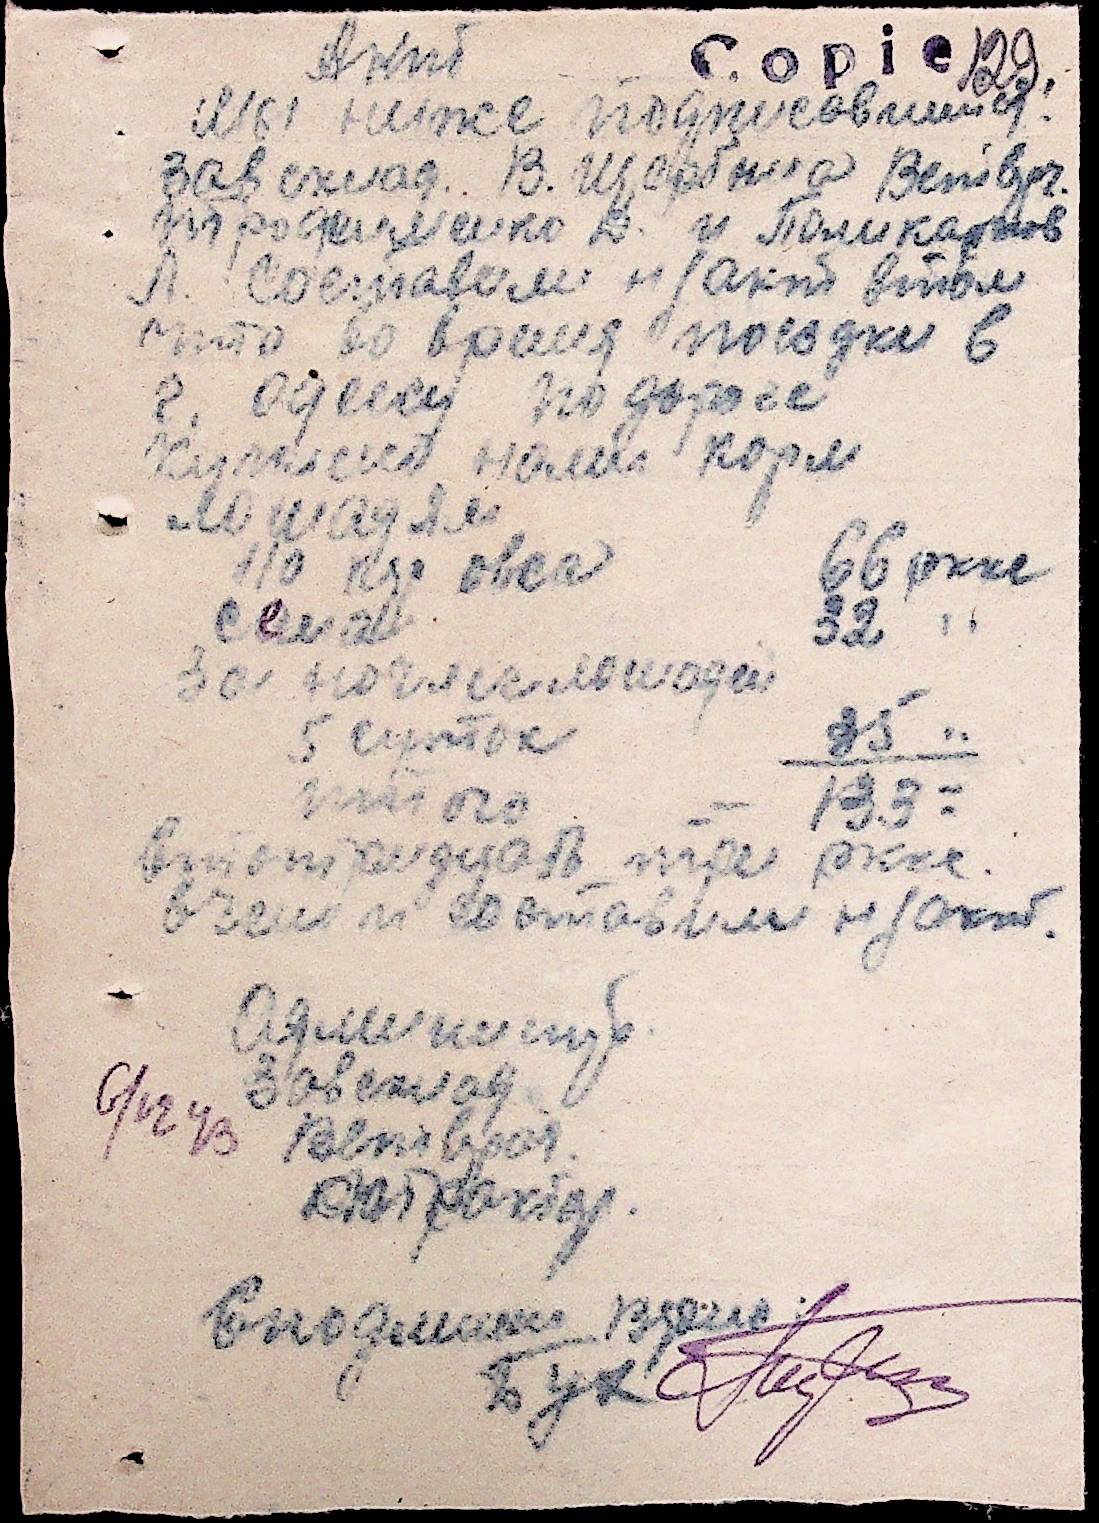 Акт Copie 129
Мы ниже подписавшиися:
Завсклад. В. Щербина Ветврч.
Трофименко В. и Поликарпов
Л. Составили н/акт втом
что во время поездки в
г. одессу по дороге
Купленно нами корм
лошадям
110 кгр овса 66 ркке
сена 32 "
За ночлег лошадей
5 суток 35 "
Итого — 133 =
втотридцать три ркке.
вчем и составили н/акт.
Администр.
Завсклад.
6/12 43
Ветврач.
Сподлинным верно:
Бух